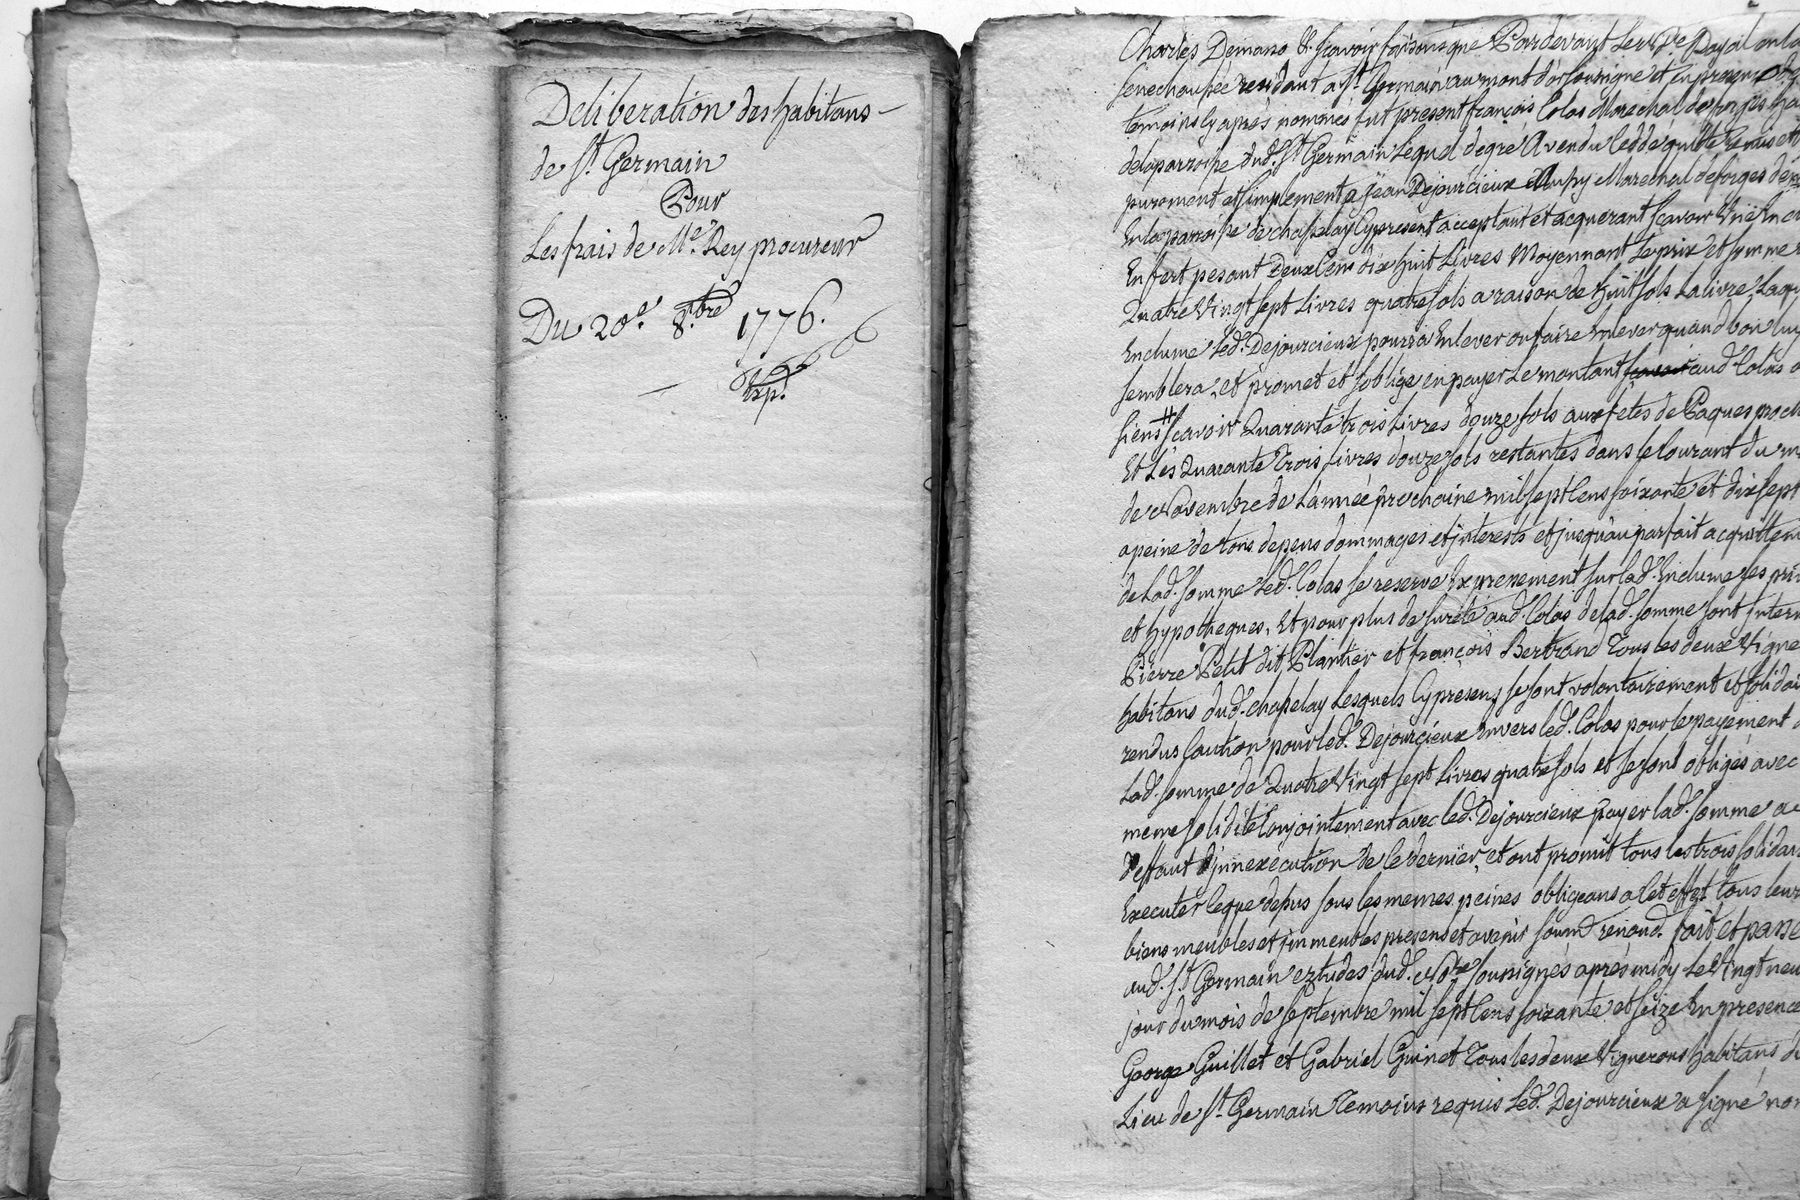 Deliberation des habitans
de St. Germain
Pour
Les frais de Me. Rey procureur
Du 20e. 8.bre 1776.
Exp.
Charles Demans &. scavoir faisons que Pardevant Le Nre. Royal en la
senechaussée residant a St. Germain au mont d'or soussigné et en presence des
temoins cy après nommés fut present françois Colas Marechal de forges ha
dela parroisse dud. St. Germain Lequel de gré A vendu cedde quitté Remis et
purement et simplement a Jean Dejourcieux Marechal de forges de
En la parroisse de chapelay Cy present acceptant et acquerant scavoir Une En
En fert pesant Deux Cens dix huit Livres Moyennant Le prix et somme
Quatre Vingt sept Livres quatre sols a raison de huit sols La livre, Laqu
Enclume Led. Dejourcieux pourra Enlever ou faire Enlever quand bon luy
semblera, et promet et s'oblige en payer Le montant aud. Colas o
siens # scavoir Quarante trois Livres douze sols aux fetes de Paques proch
Et Les Quarante Trois Livres douze sols restantes dans le Courant du m
de Novembre de L'année prochaine mil sept Cens soixante et dix sept
a peine de tous depens dommages et interests et jusqu'au parfait acquittem
de Lad. somme Led. Colas se reserve Expressement sur lad. Enclume ses pri
et hypotheques, Et pour plus de sureté aud. Colas de lad. somme sont Interv
Pierre Petit dit Plantier et françois Bertrand Tous les deux Vigne
habitans dud. chapelay Lesquels Cy presens se sont volontairement et solidai
rendus Caution pour led. Dejourcieux Envers led. Colas pour le payement d
Lad. somme de Quatre Vingt sept Livres quatre sols et se sont obligés avec
meme solidité Conjointement avec led. Dejourcieux payer lad. somme a
deffaut d'innexecution de le dernier, et ont promit tous les trois solidair
Executer le que depus sous les memes peines obligeans a Cet effet tous leur
biens meubles et immeubles presens et avenir soumd. renond. fait et passé
aud. St. Germain ez tudes dud. Nore. soussignés après midy Le Vingt neu
jour du mois de septembre mil sept Cens soixante et seize En presence
George Guillet et Gabriel Guinet Tous les deux Vignerons habitans d
Lieu de St. Germain Temoins requis Led. Dejourcieux a signé non